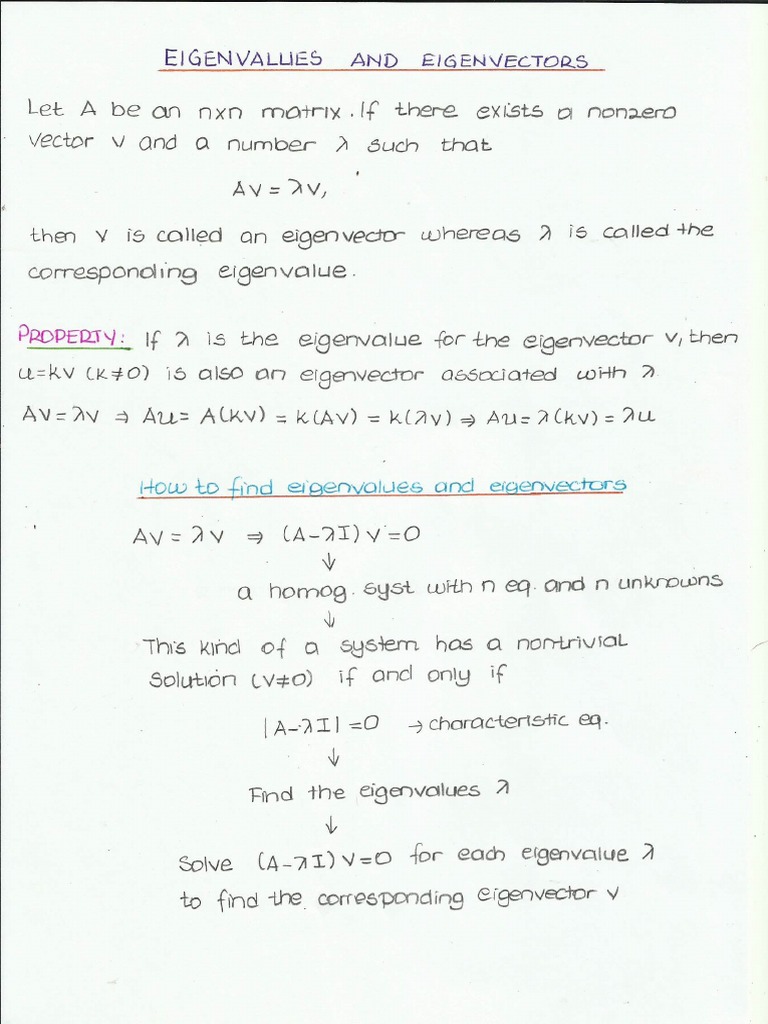 EIGENVALUES AND EIGENVECTORS
Let A be an nxn matrix. If there exists a nonzero
vector v and a number λ such that
Av = λv,
then v is called an eigenvector whereas λ is called the
corresponding eigenvalue.
PROPERTY: If λ is the eigenvalue for the eigenvector v, then
u=kv (k≠0) is also an eigenvector associated with λ
Av=λv ⇒ Au= A(kv) = k(Av) = k(λv) ⇒ Au=λ(kv) = λu
How to find eigenvalues and eigenvectors
Av = λv ⇒ (A-λI)v=0
↓
a homog. syst with n eq. and n unknowns
↓
This kind of a system has a nontrivial
solution (v≠0) if and only if
|A-λI|=0 → characteristic eq.
↓
Find the eigenvalues λ
↓
Solve (A-λI)v=0 for each eigenvalue λ
to find the corresponding eigenvector v